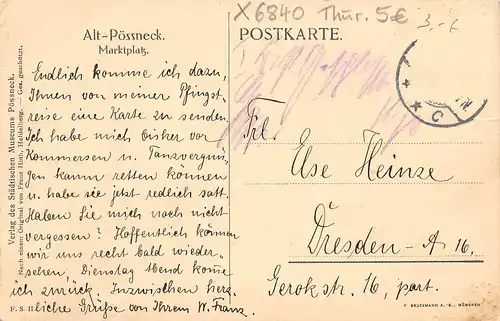 Alt-Pössneck.
Marktplatz.
Endlich komme ich dazu,
Ihnen von meiner Pfingst-
reise eine Karte zu senden.
Ich habe mich bisher vor
Kommersen u. Tanzvergnü-
gen kaum retten können
u. habe sie jetzt redlich satt.
Haben Sie mich noch nicht
vergessen? Hoffentlich können
wir uns recht bald wieder-
sehen, Dienstag Abend komme
ich zurück. Inzwischen herz-
liche Grüße von Ihrem W. Franz.
Verlag des Städtischen Museums Pössneck.
Nach einem Original von Franz Huth, Heidelberg. — Ges. geschützt.
F. S. II
X 6840 Thür. 5€
3,-6
POSTKARTE.
C
Frl.
Else Heinze
Dresden-A 16.
Gerokstr. 16, part.
F. BRUCKMANN A.-G., MÜNCHEN